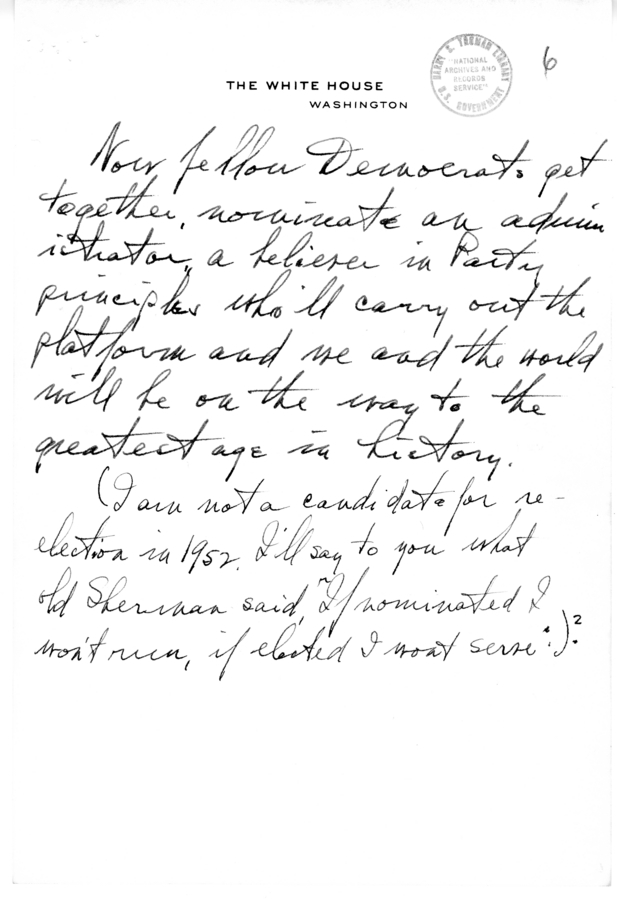 HARRY S. TRUMAN LIBRARY
"NATIONAL
ARCHIVES AND
RECORDS
SERVICE"
U.S. GOVERNMENT
6
THE WHITE HOUSE
WASHINGTON
Now fellow Democrats get
together, nominate an admin
istrator, a believer in Party
principles who'll carry out the
platform and we and the world
will be on the way to the
greatest age in history.
(I am not a candidate for re-
election in 1952. I'll say to you what
old Sherman said, "If nominated I
won't run, if elected I wont serve".)?